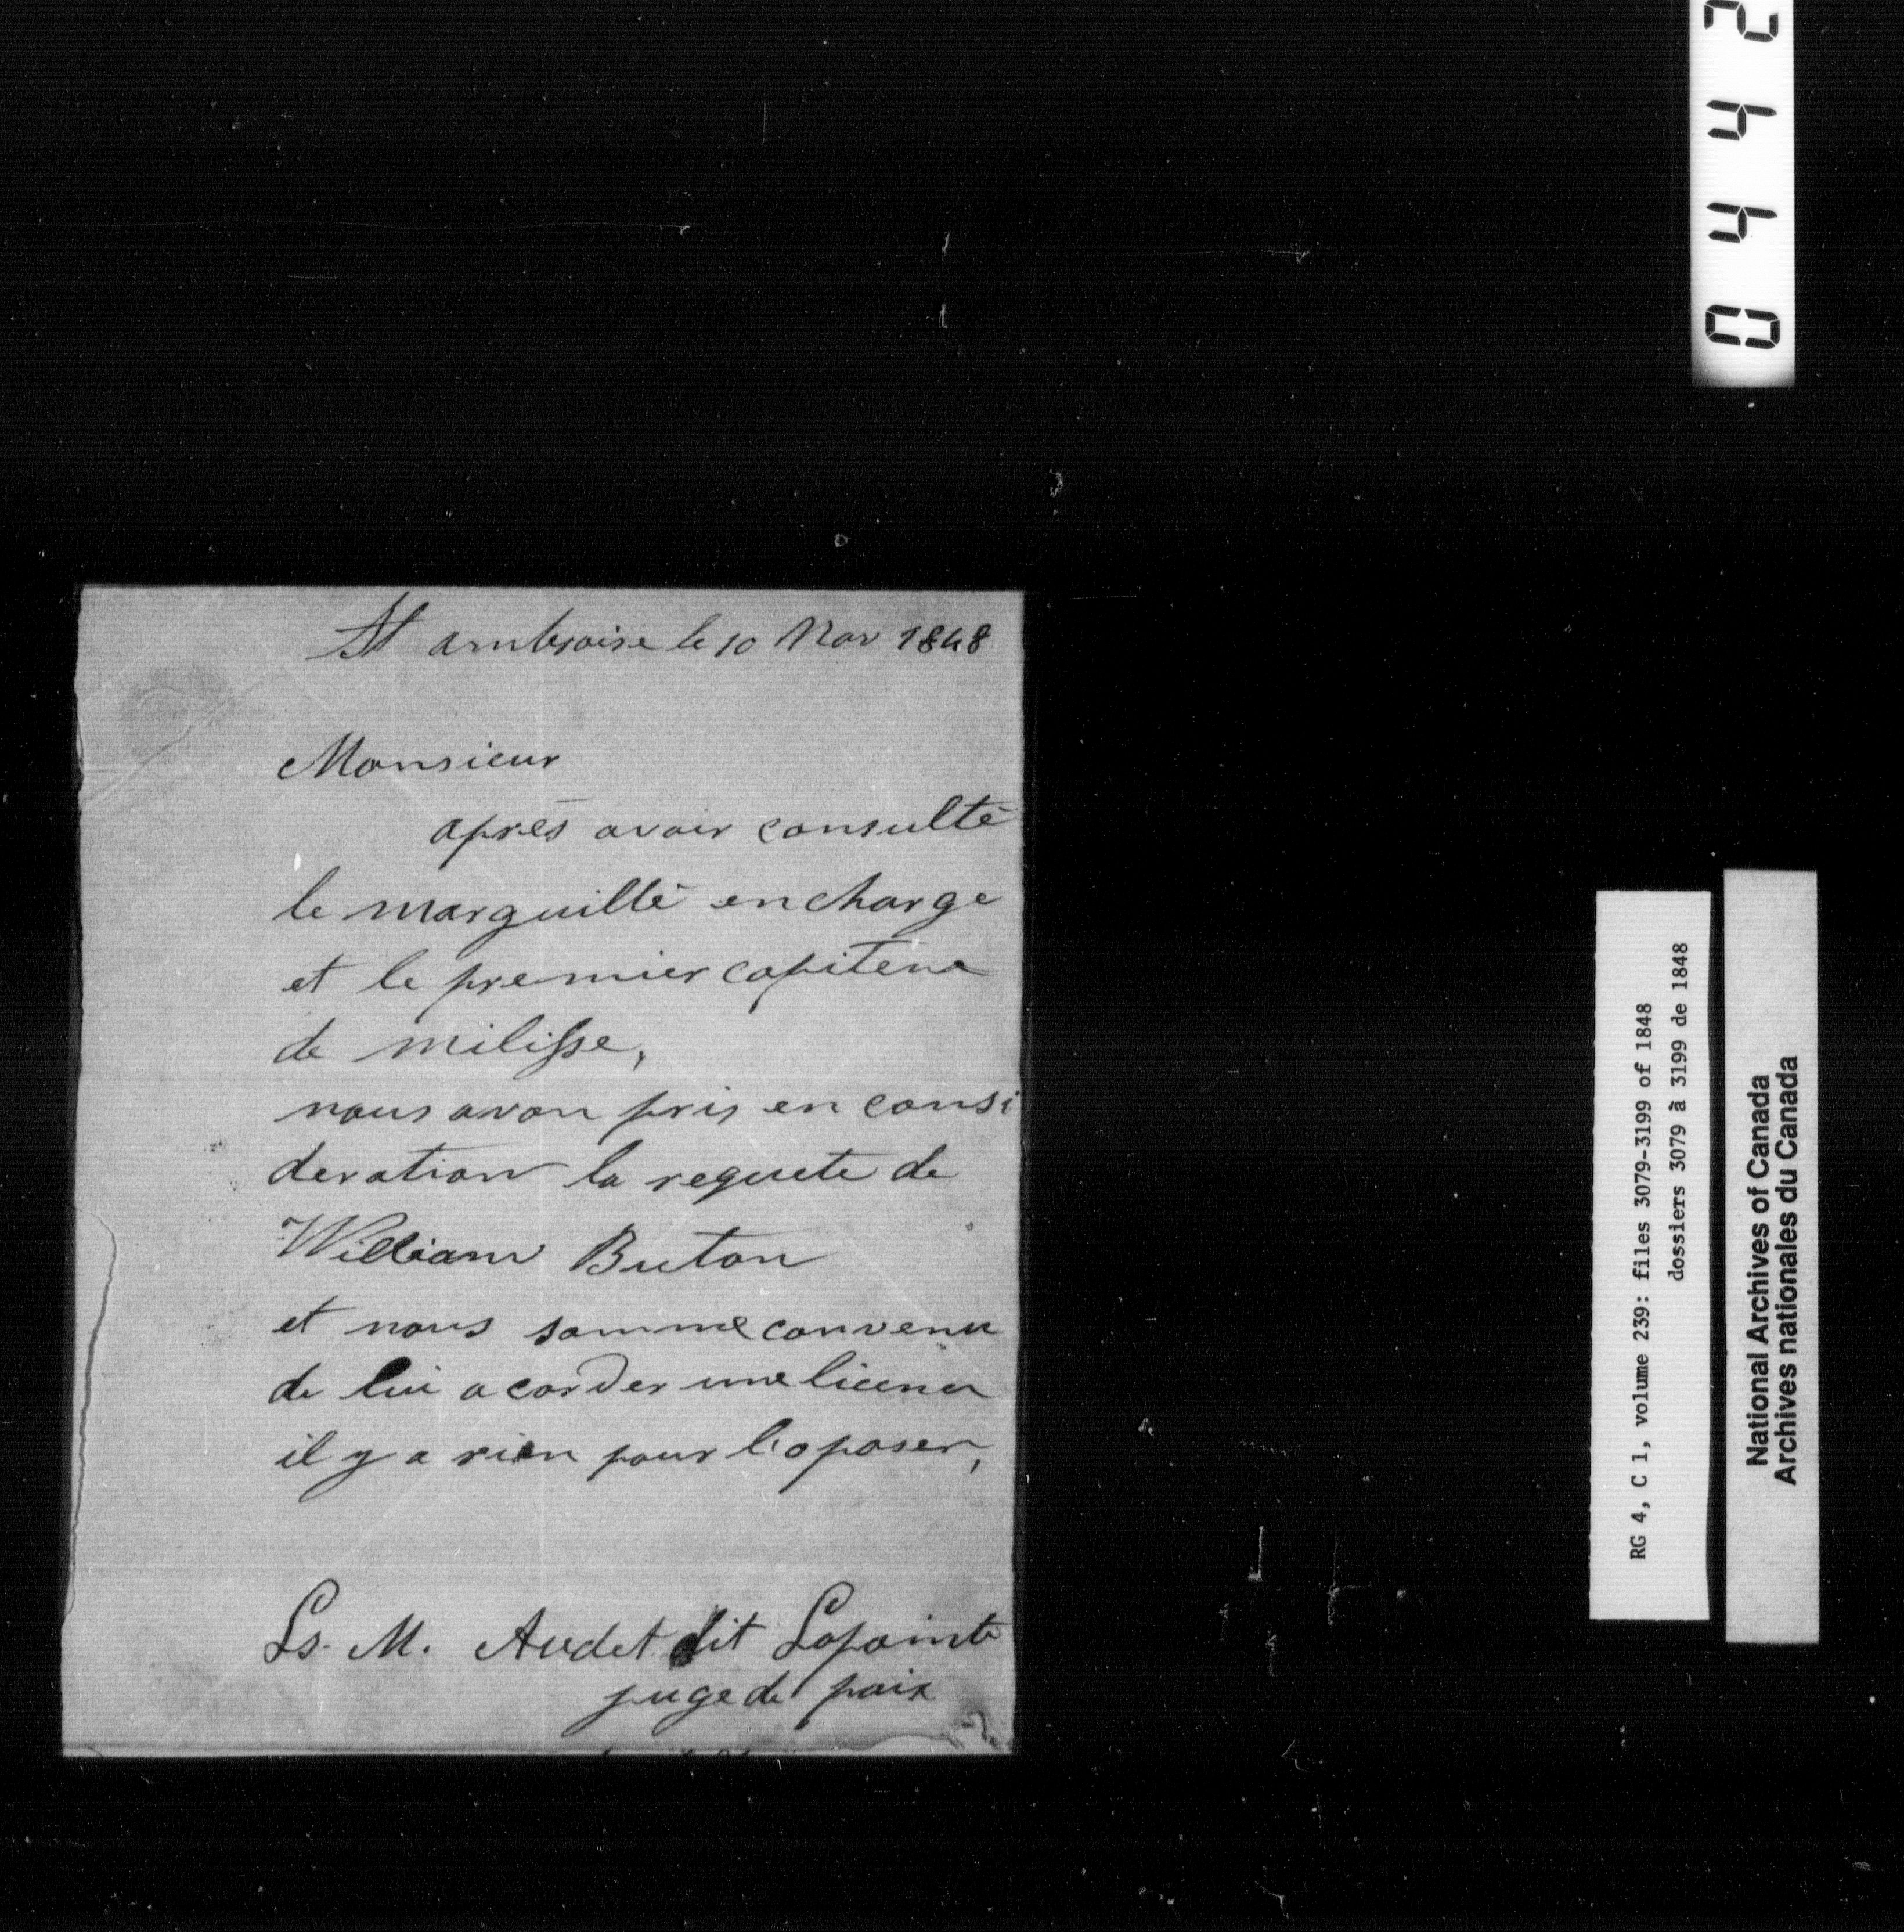 St ambroise le 10 Nov 1848
Monsieur
après avoir consulté
le marguillé en charge
et le premier capitene
de milisse,
nous avon pris en consi
deration la requete de
William Buton
et nous somme convenu
de lui acorder une licence
il y a rien pour l'oposer,
Ls. M. Audet dit Lapointe
juge de paix
0442
RG 4, C 1, volume 239: files 3079-3199 of 1848
dossiers 3079 à 3199 de 1848
National Archives of Canada
Archives nationales du Canada